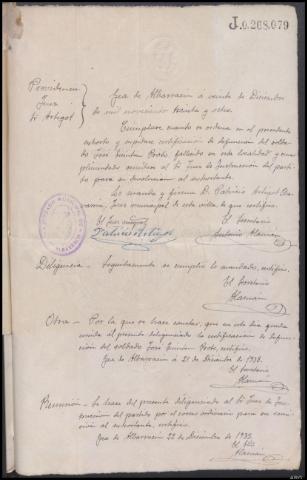 J.0.268.079
Providencia
Juez
Sr Artigot
Gea de Albarracin á veinte de Diciembre
de mil novecientos treinta y ocho.
Cúmplase cuanto se ordena en el precedente
exhorto y expídase certificación de defunción del solda-
do José fallecido en esta localidad, y cum-
plimentado remítase al Sr Juez de Instrucción del parti-
do para su devolución al exhortante.
Lo manda y firma D. Patricio Artigot
Juez municipal de esta villa, de que certifico.
El Juez municipal El Secretario
Patricio Artigot
Diligencia.- Seguidamente se cumplió lo mandado, certifico.
El Secretario
Otra.- Por la que se hace constar, que en este día queda
unida al presente diligenciado la certificación de defun-
ción del soldado José certifico.
Gea de Albarracin á 21 de Diciembre de 1938.
El Secretario
Remisión.- La hace del presente diligenciado al Sr Juez de Ins-
trucción del partido por el correo ordinario para su remi-
sión al exhortante, certifico.
Gea de Albarracin 22 de Diciembre de 1938.
El Srio